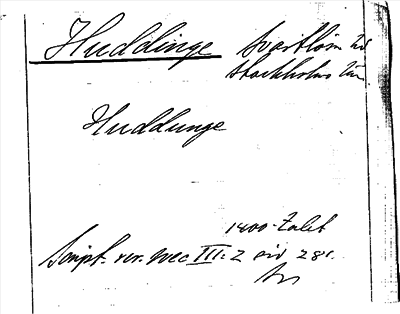 Huddinge Svartlösa hd
Stockholms län
Huddunge
1400-talet
Script. rer. svec III:2 sid 281.